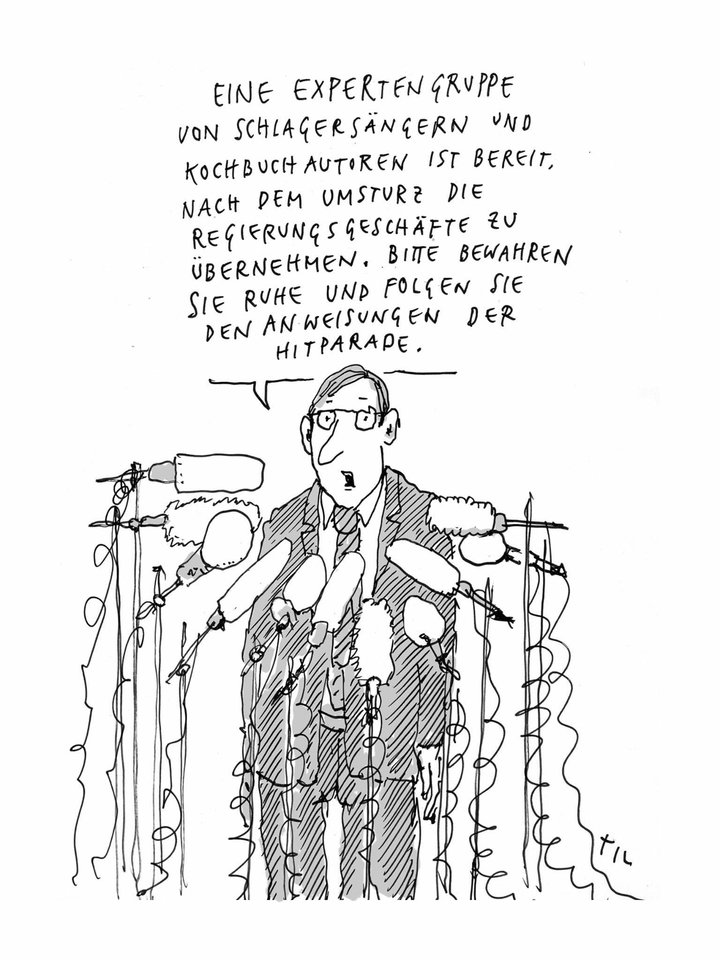 EINE EXPERTENGRUPPE
VON SCHLAGERSÄNGERN UND
KOCHBUCHAUTOREN IST BEREIT,
NACH DEM UMSTURZ DIE
REGIERUNGSGESCHÄFTE ZU
ÜBERNEHMEN. BITTE BEWAHREN
SIE RUHE UND FOLGEN SIE
DEN ANWEISUNGEN DER
HITPARADE.
TIL